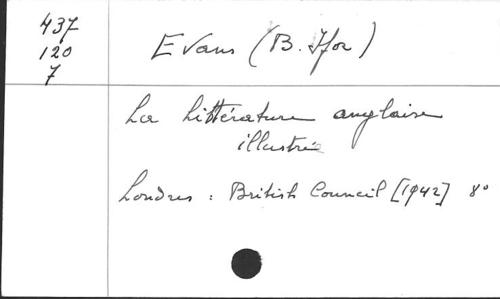 437
120
7
Evans (B. Ifor)
La Littérature anglaise
illustrée
Londres : British Council [1942] 8°